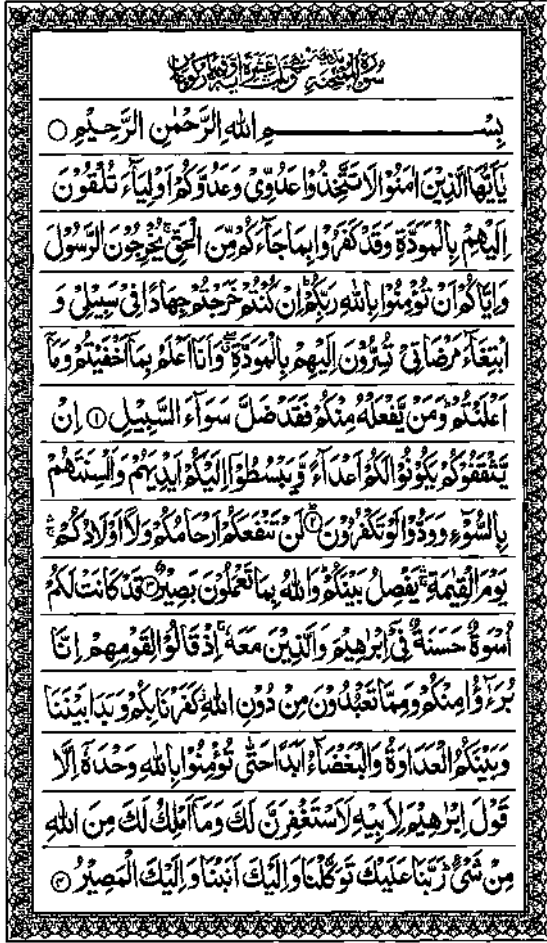 سُوْرَةُ الْمُمْتَحِنَةِ مَدَنِيَّةٌ وَّهِيَ ثَلٰثَ عَشْرَةَ اٰيَةً وَّفِيْهَا رُكُوْعَانِ
بِسْمِ اللهِ الرَّحْمٰنِ الرَّحِيْمِ ○
يٰٓاَيُّهَا الَّذِيْنَ اٰمَنُوْا لَا تَتَّخِذُوْا عَدُوِّيْ وَعَدُوَّكُمْ اَوْلِيَآءَ تُلْقُوْنَ
اِلَيْهِمْ بِالْمَوَدَّةِ وَقَدْ كَفَرُوْا بِمَا جَآءَكُمْ مِّنَ الْحَقِّ ۚ يُخْرِجُوْنَ الرَّسُوْلَ
وَاِيَّاكُمْ اَنْ تُؤْمِنُوْا بِاللهِ رَبِّكُمْ ۭ اِنْ كُنْتُمْ خَرَجْتُمْ جِهَادًا فِيْ سَبِيْلِيْ وَ
ابْتِغَآءَ مَرْضَاتِيْ تُسِرُّوْنَ اِلَيْهِمْ بِالْمَوَدَّةِ ۖ وَاَنَا اَعْلَمُ بِمَآ اَخْفَيْتُمْ وَمَآ
اَعْلَنْتُمْ ۭ وَمَنْ يَّفْعَلْهُ مِنْكُمْ فَقَدْ ضَلَّ سَوَآءَ السَّبِيْلِ ۝۱ اِنْ
يَّثْقَفُوْكُمْ يَكُوْنُوْا لَكُمْ اَعْدَآءً وَّيَبْسُطُوْٓا اِلَيْكُمْ اَيْدِيَهُمْ وَاَلْسِنَتَهُمْ
بِالسُّوْٓءِ وَوَدُّوْا لَوْ تَكْفُرُوْنَ ۝۲ لَنْ تَنْفَعَكُمْ اَرْحَامُكُمْ وَلَآ اَوْلَادُكُمْ ۚ
يَوْمَ الْقِيٰمَةِ ۚ يَفْصِلُ بَيْنَكُمْ ۭ وَاللهُ بِمَا تَعْمَلُوْنَ بَصِيْرٌ ۝۳ قَدْ كَانَتْ لَكُمْ
اُسْوَةٌ حَسَنَةٌ فِيْٓ اِبْرٰهِيْمَ وَالَّذِيْنَ مَعَهٗ ۚ اِذْ قَالُوْا لِقَوْمِهِمْ اِنَّا
بُرَءٰٓؤُا مِنْكُمْ وَمِمَّا تَعْبُدُوْنَ مِنْ دُوْنِ اللهِ ۡ كَفَرْنَا بِكُمْ وَبَدَا بَيْنَنَا
وَبَيْنَكُمُ الْعَدَاوَةُ وَالْبَغْضَآءُ اَبَدًا حَتّٰى تُؤْمِنُوْا بِاللهِ وَحْدَهٗٓ اِلَّا
قَوْلَ اِبْرٰهِيْمَ لِاَبِيْهِ لَاَسْتَغْفِرَنَّ لَكَ وَمَآ اَمْلِكُ لَكَ مِنَ اللهِ
مِنْ شَيْءٍ ۭ رَبَّنَا عَلَيْكَ تَوَكَّلْنَا وَاِلَيْكَ اَنَبْنَا وَاِلَيْكَ الْمَصِيْرُ ۝۴